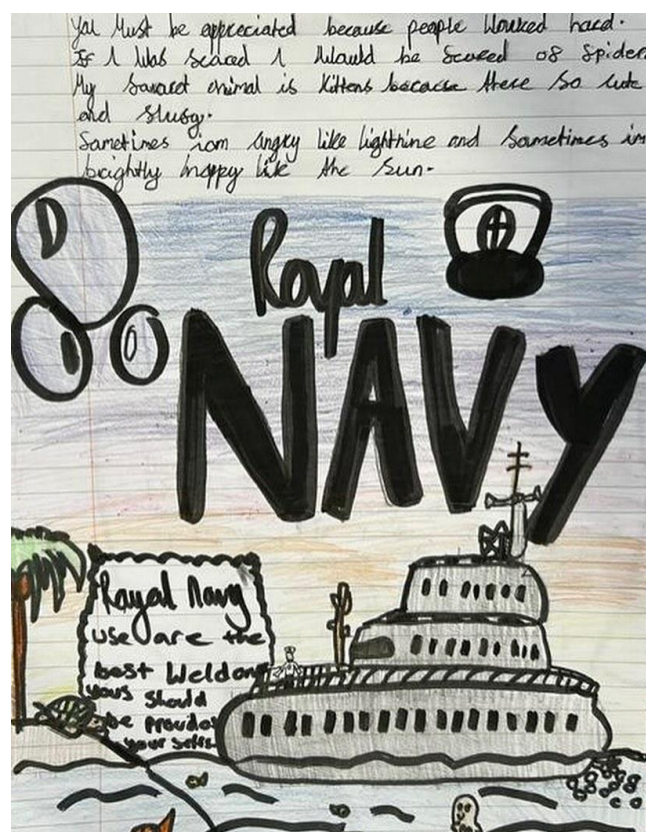 You Must be appreciated because people Worked hard.
If I Was scared I Would be Scared of Spider
My Savarot animal is Kittens because there so cute
and Slusy.
Sametimes iam angry like lightnine and Sametimes im
brightly happy like the sun.
Royal
NAVY
Royal Navy
use are the
best Weldon
yous should
be proudos
your selfs